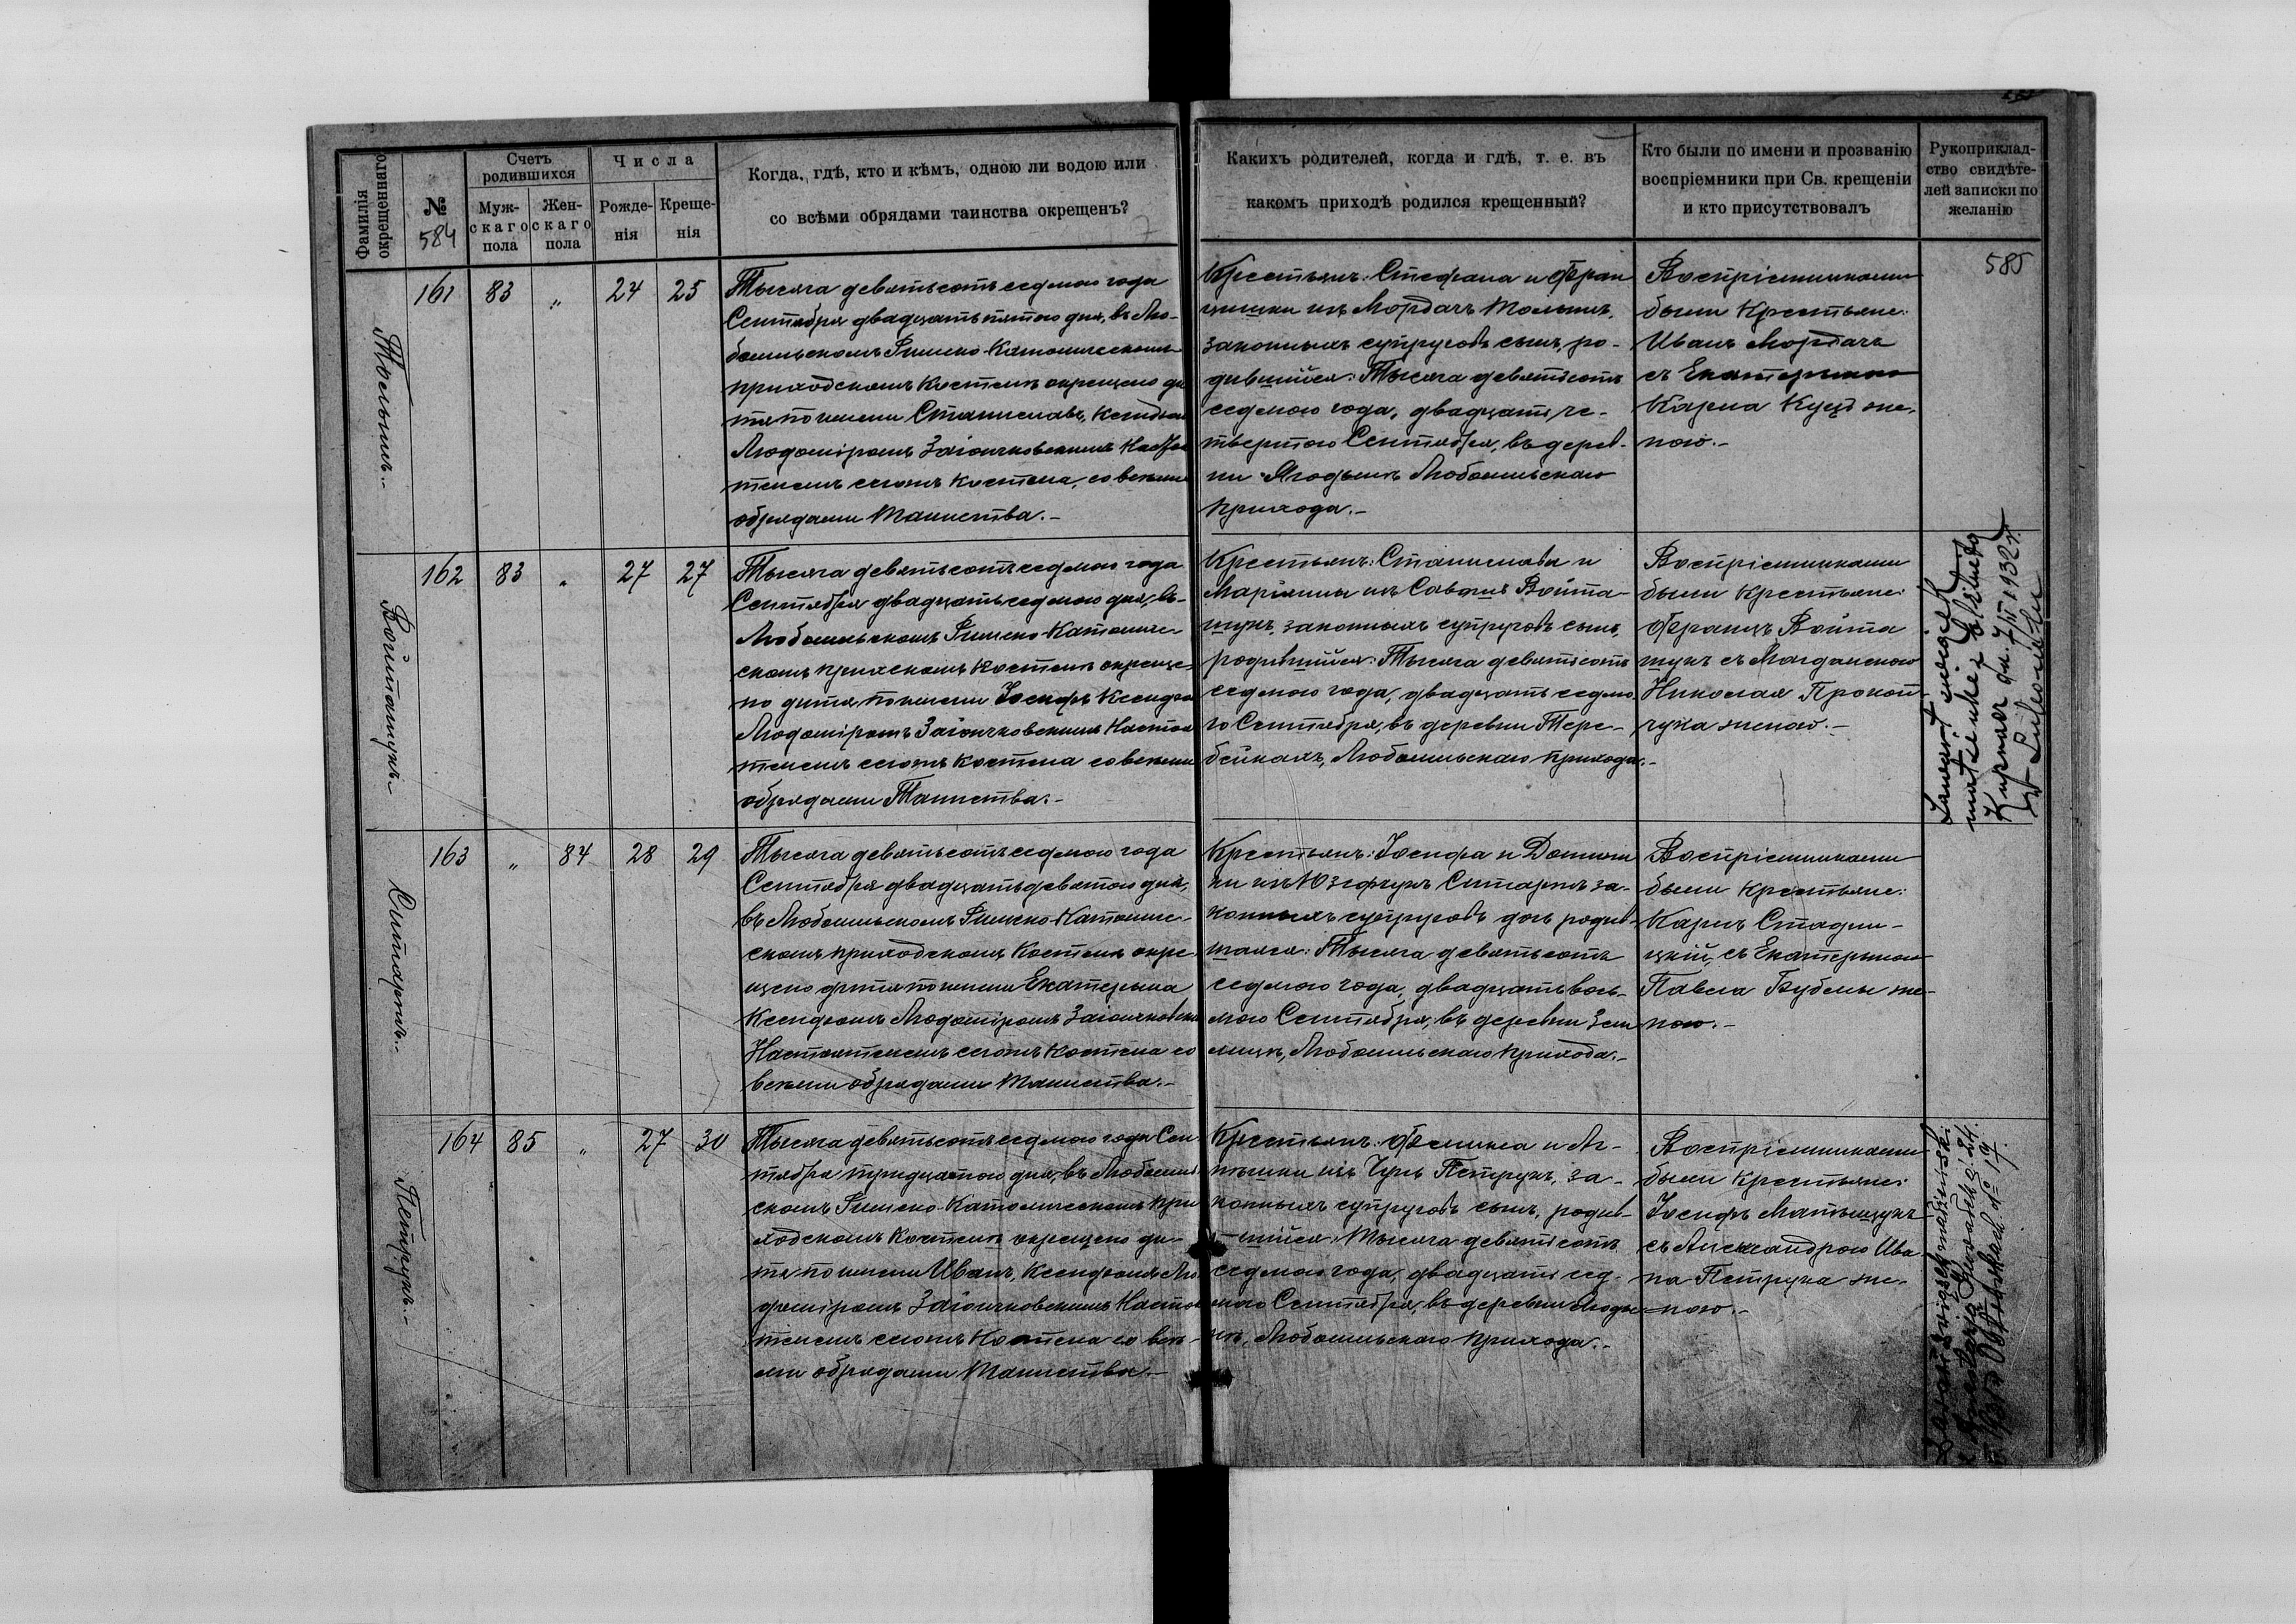 Фамилія окрещеннаго
№
584
Счетъ родившихся
Муж-
скаго
пола
Жен-
скаго
пола
Числа
Рожде-
нія
Креще-
нія
Когда, гдѣ, кто и кѣмъ, одною ли водою или
со всѣми обрядами таинства окрещенъ?
Какихъ родителей, когда и гдѣ, т. е. въ
какомъ приходѣ родился крещенный?
Кто были по имени и прозванію
воспріемники при Св. крещеніи
и кто присутствовалъ
Рукоприклад-
ство свидѣте-
лей записки по
желанію
585
161 83 „ 24 25
Тысяча девятьсотъ седмого года
Сентября двадцать пятого дня, въ Лю-
бомльскомъ Римско-Католическомъ
приходскомъ Костелѣ окрещено ди
тя по имени Станиславъ, Ксендзом
Людоміромъ Заіончковскимъ Настоя
телемъ сего Костела, со всѣми
обрядами Таинства.-
Крестьянъ: Стефана и Фран
цишки изъ Мордачъ
законныхъ супруговъ сынъ, ро-
дившійся: Тысяча девятьсотъ
седмого года, двадцать че-
твертого Сентября, въ дерев-
ни Ягодынъ Любомльскаго
прихода.-
Воспріемниками
были Крестьяне:
Иванъ Мордачъ
съ Екатериною
Карла Куць же-
ною.-
162 83 „ 27 27
Войтащукъ.-
Тысяча девятьсотъ седмого года
Сентября двадцать седмого дня, въ-
Любомльскомъ Римско-Католиче-
скомъ прихскомъ Костелѣ окреще-
но дитя, по имени Іосифъ Ксендзом
Людоміромъ Заіончковскимъ Настоя
телемъ сего Костела со всѣми
обрядами Таинства.-
Крестьянъ: Станислава и
Маріянны изъ Войта-
щукъ, законныхъ супруговъ сынъ,
родившійся: Тысяча девятьсотъ
седмого года, двадцать седмо
го Сентября, въ деревни Тере-
бейкахъ, Любомльскаго прихода.-
Воспріемниками
были Крестьяне:
Францъ Войта
щукъ съ Магдаленою
Николая Прокоп-
чука женою.-
Zawarł związek
małżeński
dn. 7/III 1932 r.
163 „ 84 28 29
Ситаржъ.-
Тысяча девятьсотъ седмого года
Сентября двадцать девятого дня,
въ Любомльскомъ Римско-Католиче-
скомъ приходскомъ Костелѣ окре-
щено дитя по имени Екатерына
Ксендзомъ Людоміромъ Заіончковским
Настоятелемъ сего Костела со
всѣми обрядами Таинства.-
Крестьянъ: Іосифа и Домини
ки изъ Юзефчукъ Ситаржъ за-
конныхъ супруговъ дочь родив-
шаяся: Тысяча девятьсотъ
седмого года, двадцать вось-
мого Сентября, въ деревни Зем
лицѣ, Любомльскаго прихода.-
Воспріемниками
были Крестьяне:
Карлъ Стадни-
цкій, съ Екатерыною
Павла Бубелы же-
ною.-
164 85 „ 27 30
Петрукъ.-
Тысяча девятьсотъ седмого года Сен
тября тридцатого дня, въ Любомль-
скомъ Римско-Католическомъ при
ходскомъ Костелѣ окрещено ди-
тя по имени Иванъ, Ксендзомъ Лю
доміромъ Заіончковскимъ Настоя
телемъ сего Костела со всѣ-
ми обрядами Таинства.-
Крестьянъ: Феликса и Аг-
нѣшки изъ Чунь Петрукъ, за-
конныхъ супруговъ сынъ, родив-
шійся: Тысяча девятьсотъ
седмого года, двадцать сед-
мого Сентября, въ деревни
Любомльскаго прихода.-
Воспріемниками
были Крестьяне:
Іосифъ Матыщукъ
съ Александрою Ива
на Петрука же-
ною.-